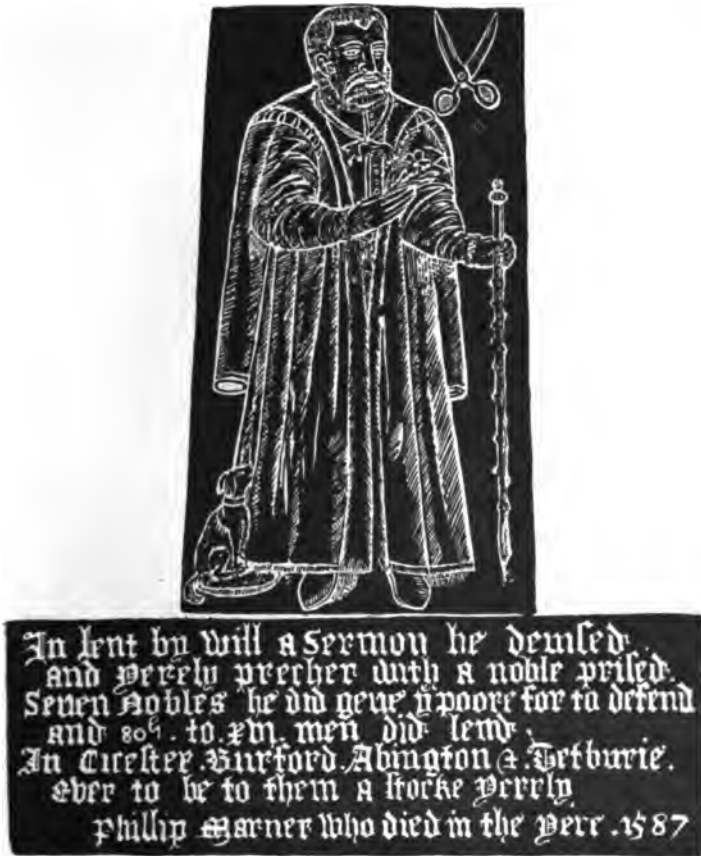 In lent by will a Sermon he deuised
and yerely precher with a noble prised
Seuen Nobles he did geue yͤ poore for to defend
and 80ˡ . to . xvi . men did lend ,
In Cicester . Burford . Abington & . Tetburie .
Ever to be to them a stocke Yerely
Phillip Marner who died in the yere . 1587